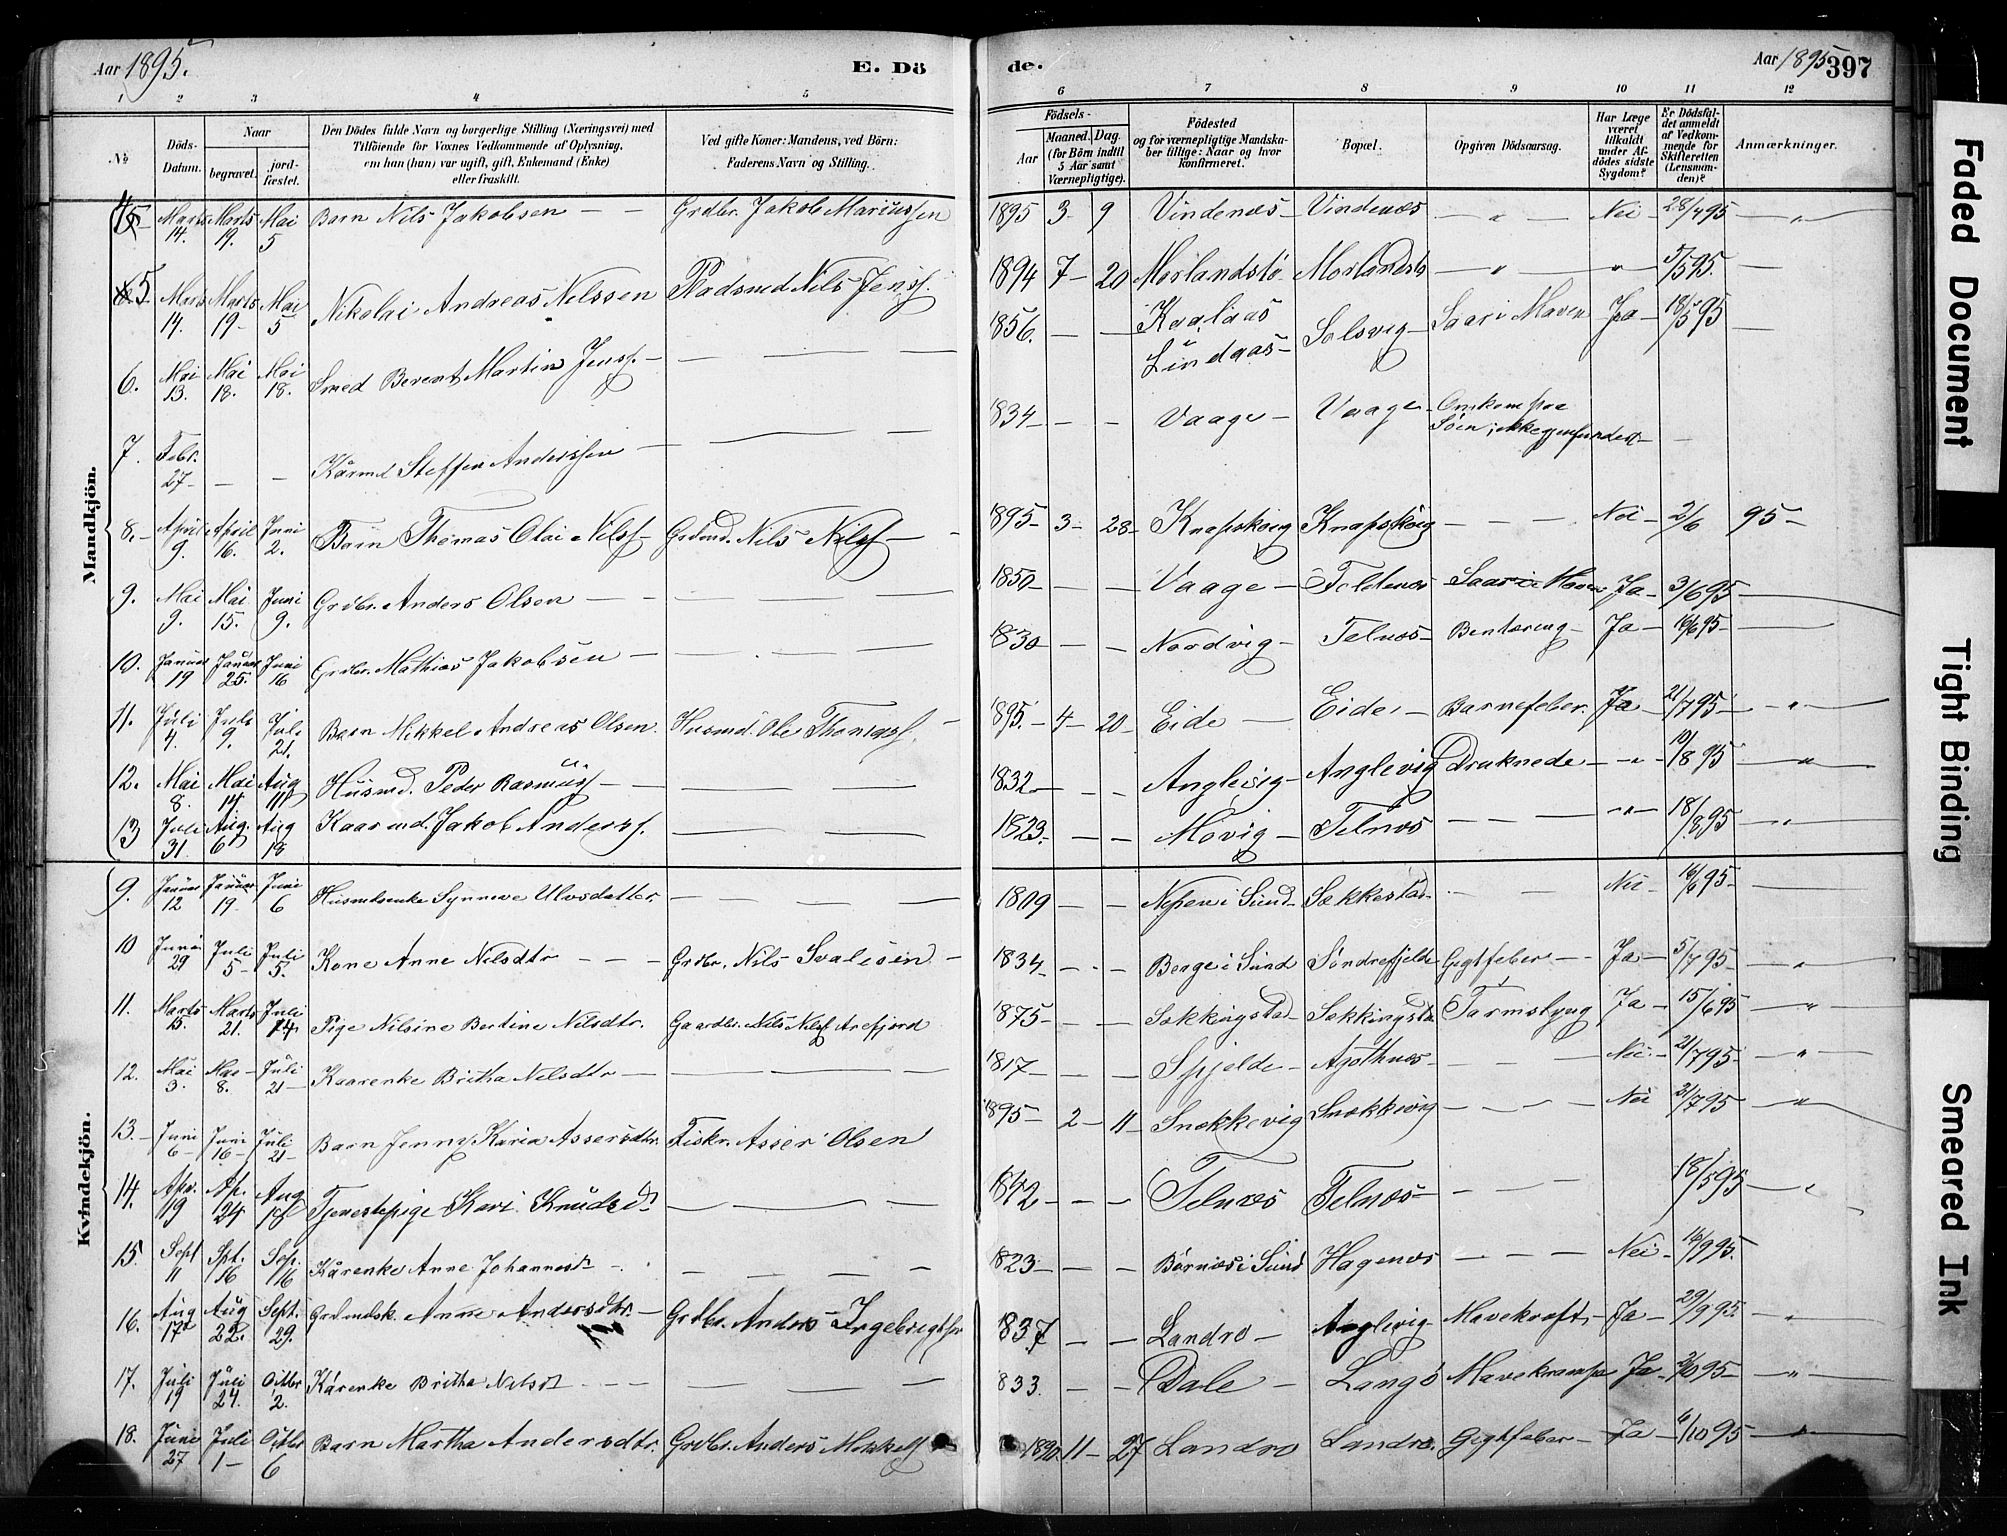 Aar 1895.
E. Dö
de.
Aar 1895
397
1 2 3 4 5 6 7 8 9 10 11 12
No
Döds-
Datum.
Naar
begravet.
jord-
fæstet.
Den Dödes fulde Navn og borgerlige Stilling (Næringsvei) med
Tilföiende for Voxnes Vedkommende af Oplysning,
om han (hun) var ugift, gift, Enkemand (Enke)
eller fraskilt.
Ved gifte Koner: Mandens, ved Börn:
Faderens Navn og Stilling.
Födsels-
Aar
Maaned. Dag.
(for Börn indtil
5 Aar samt
Værnepligtige).
Födested
og for værnepligtige Mandska-
ber tillige: Naar og hvor
konfirmeret.
Bopæl.
Opgiven Dödsaarsag.
Har Læge
været
tilkaldt
under Af-
dödes sidste
Sygdom?
Er Dödsfal-
det anmeldt
af Vedkom-
mende for
Skifteretten
(Lensman-
den)?
Anmærkninger.
Mandkjön.
Marts 14. Marts 19. Mai 5 Barn Nils Jakobsen — — Grdbr. Jakob Mariussen 1895 3 9 Vindenæs Vindenæs — " — Nei 28/4 95 — " —
5 Marts 14. Marts 19 Mai 5 Nikolai Andreas Nilssen Pladsmd Nils Jensf. 1894 7 20 Morlandstø Morlandstø — " — " 5/5 95. —
6. Mai 13. Mai 18. Mai 18. Smed Berent Martin Jensf. — — — 1856. — — Kvalaas Lindaas Solsvig Saar i Maven Ja 18/5 95 —
7. Febr. 27 — — Kårmd Steffen Anderssen — — — 1834 — — Vaage Vaage Omkom paa Søen; ikke gjenfunden — —
8. April 9. April 16. Juni 2. Barn Thomas Olai Nilsf. Grdmd. Nils Nilsf. 1895 3 28 Knapskog Knapskog — — — Nei 2/6 95 —
9. Mai 9. Mai 15. Juni 9. Grdbr. Anders Olsen — — — 1850 — — Vaage Toldnæs Saar i Maven Ja 3/6 95 —
10. Januar 19 Januar 25. Juni 16 Grdbr. Mathias Jakobsen — — — 1830 — — Nordvig Telnæs Bentæring Ja 16/6 95 —
11. Juli 4. Juli 9. Juli 21. Barn Mikkel Andreas Olsen. Husmd. Ole Thomasf. 1895. 4 20 Eide Eide Barnefeber. Ja 21/7 95 — " —
12. Mai 8. Mai 14. Aug 11 Husmd. Peder Rasmusf. — — — 1832 — — Anglevig Anglevig Druknede — " — 19/8 95 — " —
13 Juli 31. Aug. 6 Aug 18 Kaarmd. Jakob Andersf. — — — 1823. — — Møvig Telnæs — — — " 18/8 95 — " —
Kvindekjön.
9. Januar 12 Januar 19. Juni 6 Husmdsenke Synneve Ulvsdatter. — — — 1809 — — i Sund Sækkestad — — Nei 16/6 95 —
10 Juni 29 Juli 5 Juli 5. Kone Anne Nilsdtr — — — Grdbr. Nils 1834 — — Berge i Sund Søndrefjelde Gigtfeber — Ja 5/7 95 — " —
11. Marts 15. Marts 21. Juli 14 Pige Nilsine Bertine Nilsdtr. Gaardbr. Nils Nilsf Arefjord 1875 — — Sækkingstad Sækkingstad Tarmslyng Ja 15/6 95 — " —
12. Mai 3. Mai 8. Juli 21 Kaarenke Britha Nilsdtr — — — 1817 — — Spjelde Agothnæs — — — Nei 21/7 95 — " —
13. Juni 6 Juni 16 Juli 21 Barn Jenny Karia Assersdtr. Fiskr. Asser Olsen 1895 2 11 Snekkevig Snekkevig — — — Nei 21/7 95 — " —
14. Apr. 19 Ap. 24 Aug 18 Tjenestepige Kari Knudsd. — — — 1842 — — Telnæs Telnæs — — — 18/5 95 — " —
15. Sept 11 Spt. 16 Sep. 16 Kårenke Anne Johannesdtr — — — 1823 — — Børnæs i Sund Hagenæs — — — Nei 16/9 95.
16. Aug 17 Aug 22. Sept. 29. Grdmdsk. Anne Andersdtr. — Grdbr. Anders Ingebrigtsen 1837 — — Landro Anglevig Mavekræft Ja 29/9 95. — " —
17. Juli 19 Juli 24. Octbr 2. Kårenke Britha Nilsd. — — — 1833. — — Dale Langø Mavekrampe Ja 2/10 95 — " —
18. Juni 27 Juli 1 Octbr 6 Barn Martha Andersdtr. Grdbr. Anders Mikkelsf 1890 11 27 Landro Landro. Gigtfeber Ja 6/10 95 — " —
Faded Document
Tight Binding
Smeared Ink